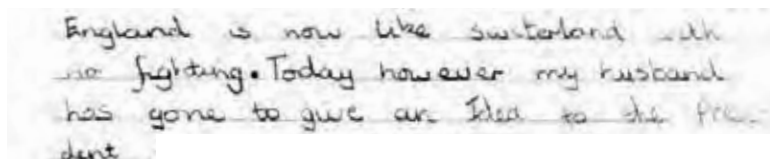 England is now like switerland with
no fighting. Today however my husband
has gone to give an Idea to the Pre-
dent